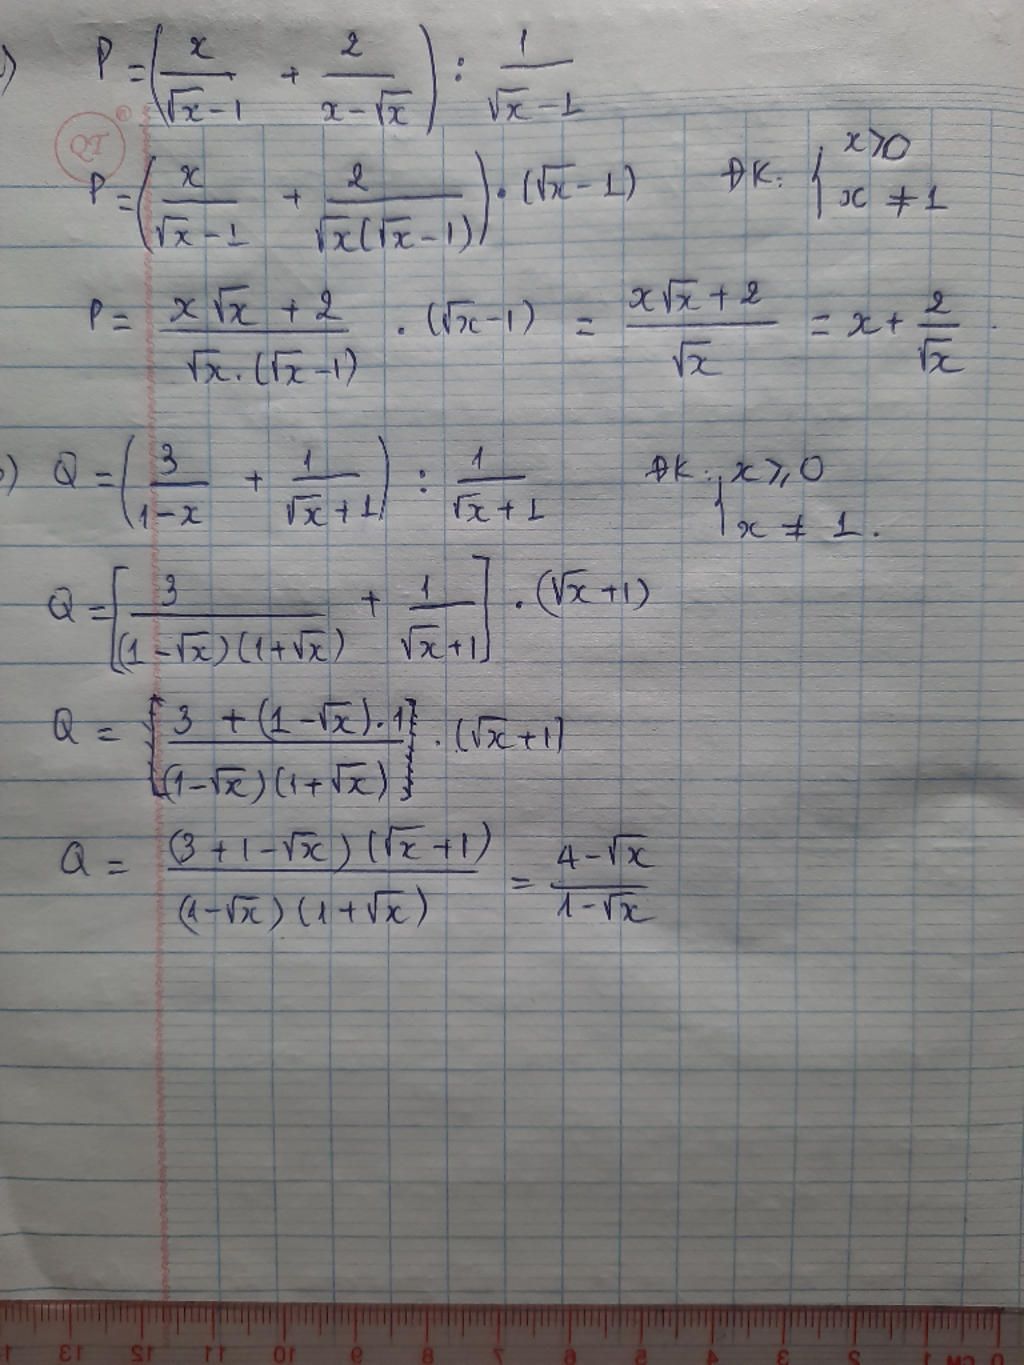 ) P = (x/(√x-1) + 2/(x-√x)) : 1/(√x-1)
QT ®
P = (x/(√x-1) + 2/(√x(√x-1))) . (√x-1) ĐK: { x>0
x ≠ 1
P = (x√x + 2)/(√x.(√x-1)) . (√x-1) = (x√x + 2)/√x = x + 2/√x .
) Q = (3/(1-x) + 1/(√x+1)) : 1/(√x+1) ĐK: { x ⩾ 0
x ≠ 1.
Q = [3/((1-√x)(1+√x)) + 1/(√x+1)] . (√x+1)
Q = [(3 + (1-√x).1)/((1-√x)(1+√x))] . (√x+1]
Q = ((3+1-√x)(√x+1))/((1-√x)(1+√x)) = (4-√x)/(1-√x)
13 12 11 10 9 8 7 6 5 4 3 2 1 cm 0